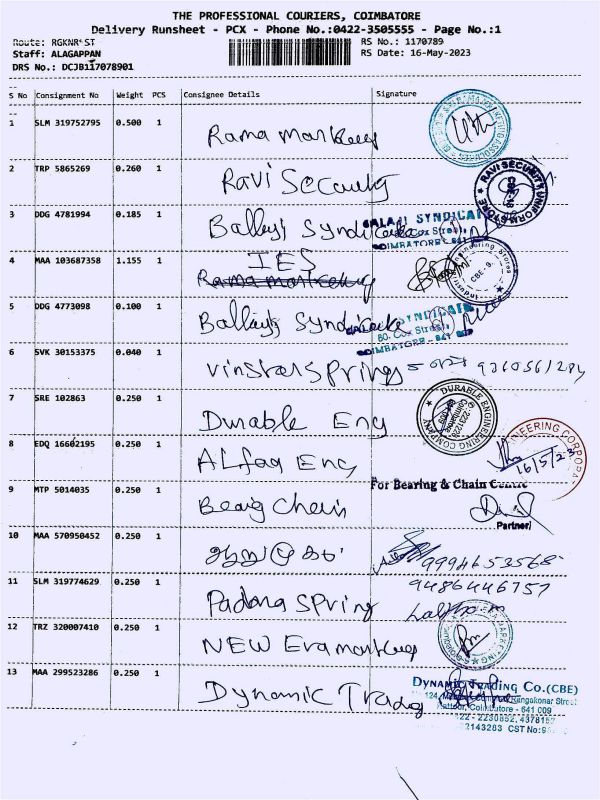 THE PROFESSIONAL COURIERS, COIMBATORE
Delivery Runsheet - PCX - Phone No.:0422-3505555 - Page No.:1
Route: RGKNR ST
RS No.: 1170789
Staff: ALAGAPPAN
RS Date: 16-May-2023
DRS No.: DCJB117078901
S No Consignment No Weight PCS Consignee Details Signature
1 SLM 319752795 0.500 1 Rama marketing
2 TRP 5865269 0.260 1 Ravi Security
RAVI SECURITY UNIFORM STORE
CBE-18
3 DDG 4781994 0.185 1 Syndicate
BALAJI SYNDICATE
Cox Street
COIMBATORE - 641
4 MAA 103687358 1.155 1 IES
Rama marketing
Industrial Engineering Stores
CBE - 9.
5 DDG 4773098 0.100 1 Syndicate
SYNDICATE
80, Cox Street
COIMBATORE - 641
6 SVK 30153375 0.040 1 Vinstar Springs
7 SRE 102863 0.250 1 Durable Eng
DURABLE ENGINEERING COMPANY
Coimbatore
8 EDQ 16602195 0.250 1 ALfaa Eng
16/5/23
9 MTP 5014035 0.250 1 Chain
For Bearing & Chain Centre
Partner
10 MAA 570950452 0.250 1
9994653568
11 SLM 319774629 0.250 1 Spring
9486446757
12 TRZ 320007410 0.250 1 NEW Era marketing
13 MAA 299523286 0.250 1 Dynamic Trading
DYNAMIC TRADING CO.(CBE)
Rangakonar Street
Kattoor, Coimbatore - 641 009
2230852, 4378157
2143283 CST No: